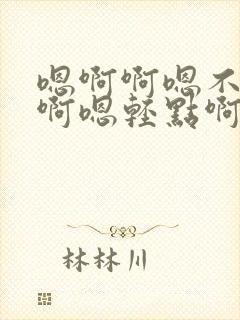 嗯啊啊嗯不
啊嗯轻點啊
林林川